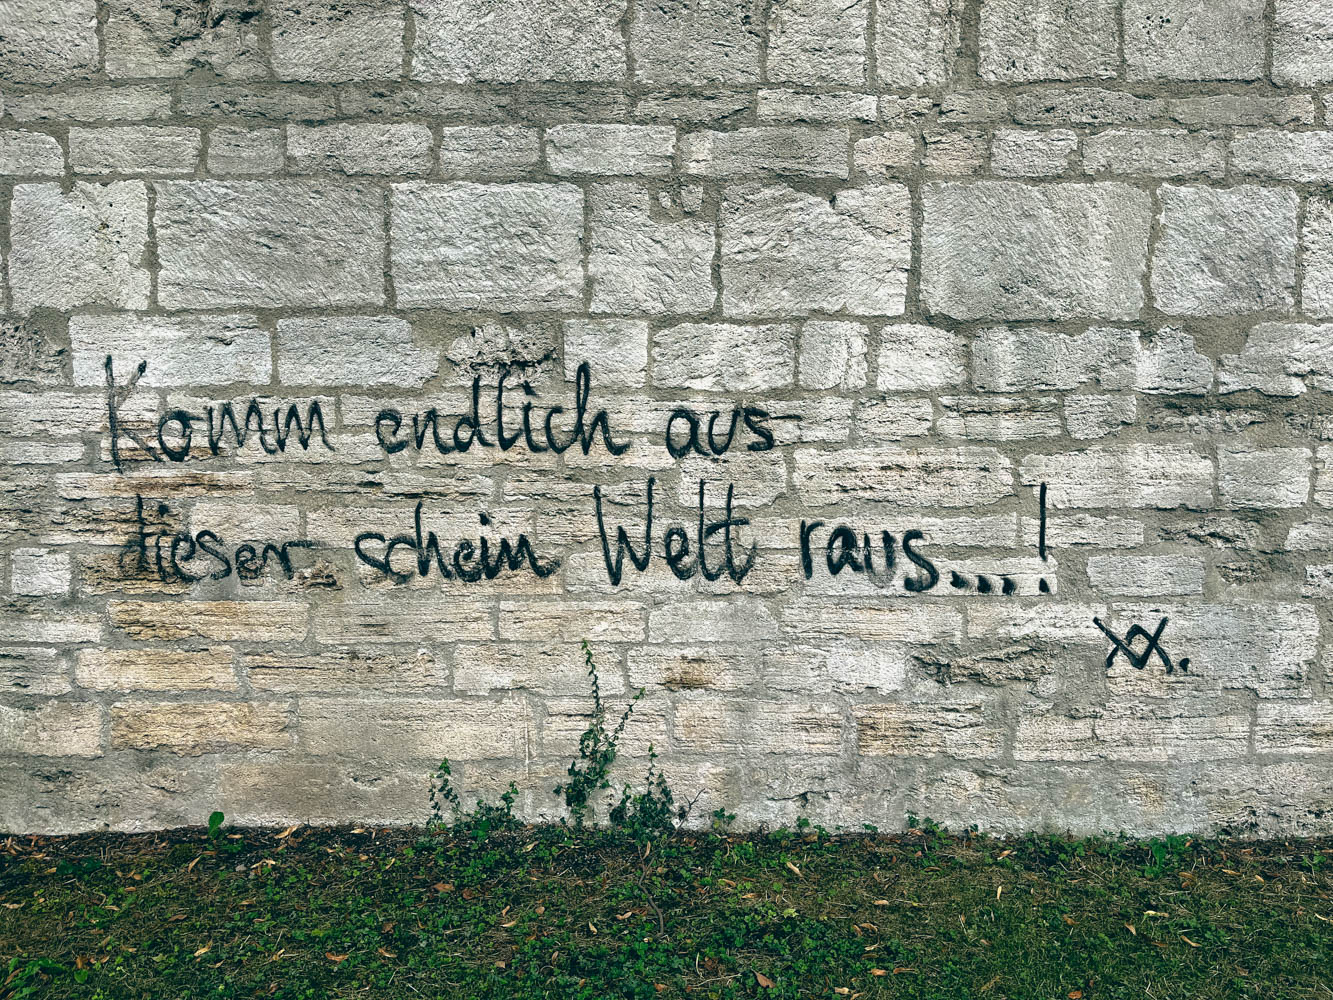 Komm endlich aus
dieser schein Welt raus....!